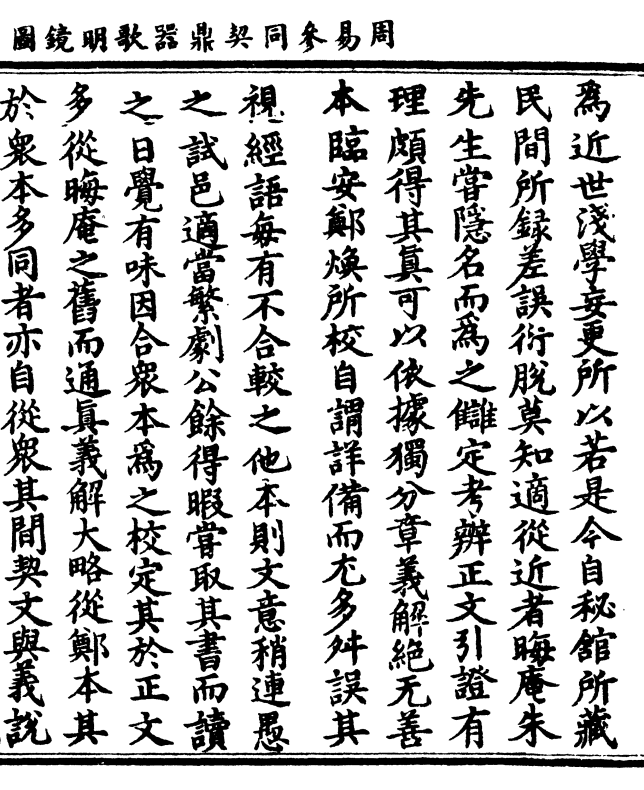 周易參同契鼎器歌明鏡圖
為近世淺學妄更所以若是今自秘館所藏
民間所録差誤衍脫莫知適從近者晦庵朱
先生嘗隱名而為之讎定考辨正文引證有
理頗得其真可以依據獨分章義解絕无善
本臨安鄭煥所校自謂詳備而尤多舛誤其
視經語每有不合較之他本則文意稍連愚
之試邑適當繁劇公餘得暇嘗取其書而讀
之一日覺有味因合衆本為之校定其於正文
多從晦庵之舊而通真義解大略從鄭本其
於衆本多同者亦自從衆其間契文與義說